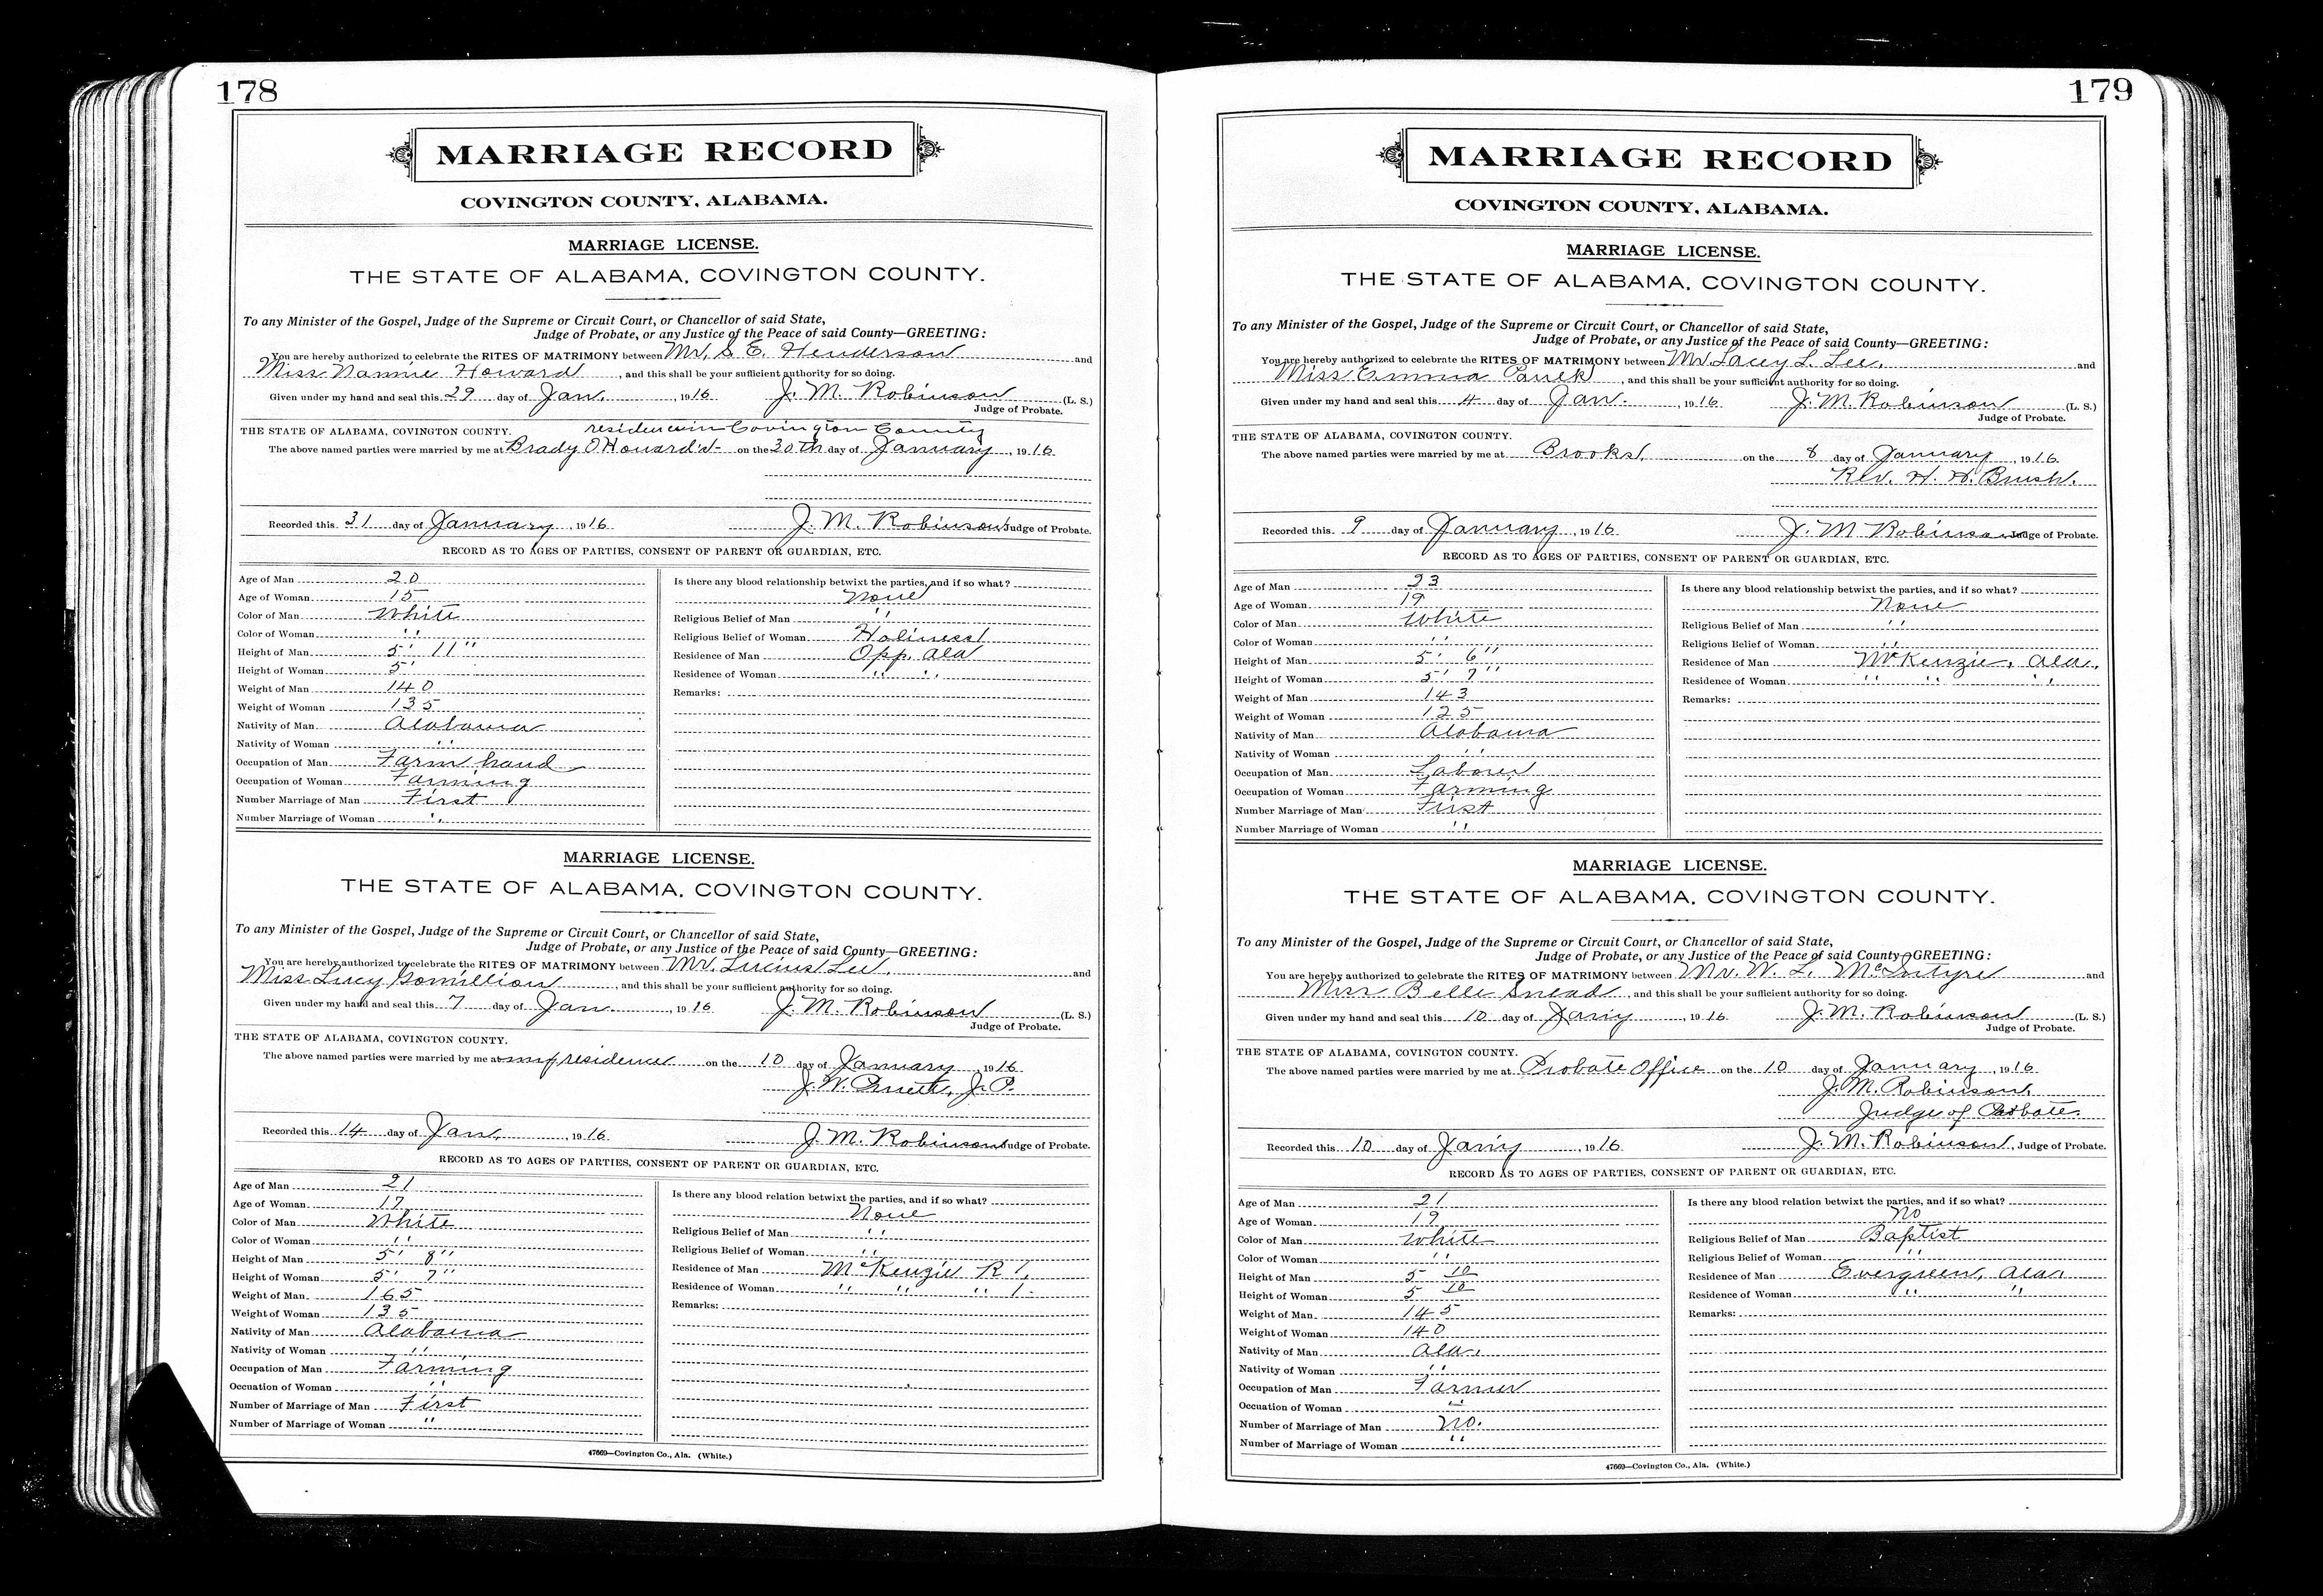 178
MARRIAGE RECORD
COVINGTON COUNTY, ALABAMA.
MARRIAGE LICENSE.
THE STATE OF ALABAMA, COVINGTON COUNTY.
To any Minister of the Gospel, Judge of the Supreme or Circuit Court, or Chancellor of said State,
Judge of Probate, or any Justice of the Peace of said County—GREETING:
You are hereby authorized to celebrate the RITES OF MATRIMONY between Mr. S. E. Henderson and
Miss Nannie Howard, and this shall be your sufficient authority for so doing.
Given under my hand and seal this 29 day of Jan. , 1916 J. M. Robinson (L. S.)
Judge of Probate.
THE STATE OF ALABAMA, COVINGTON COUNTY. residence in Covington County
The above named parties were married by me at Brady O Howard's on the 30th day of January, 1916
Recorded this 31 day of January, 1916 J. M. Robinson Judge of Probate.
RECORD AS TO AGES OF PARTIES, CONSENT OF PARENT OR GUARDIAN, ETC.
Age of Man 20
Age of Woman 15
Color of Man White
Color of Woman "
Height of Man 5' 11"
Height of Woman 5'
Weight of Man 140
Weight of Woman 135
Nativity of Man Alabama
Nativity of Woman "
Occupation of Man Farm hand
Occupation of Woman Farming
Number Marriage of Man First
Number Marriage of Woman "
Is there any blood relationship betwixt the parties, and if so what?
None
Religious Belief of Man "
Religious Belief of Woman Holiness
Residence of Man Opp, Ala
Residence of Woman " "
Remarks:
MARRIAGE LICENSE.
THE STATE OF ALABAMA, COVINGTON COUNTY.
To any Minister of the Gospel, Judge of the Supreme or Circuit Court, or Chancellor of said State,
Judge of Probate, or any Justice of the Peace of said County—GREETING:
You are hereby authorized to celebrate the RITES OF MATRIMONY between Mr. Lucius Lee, and
Miss Lucy Gomillion, and this shall be your sufficient authority for so doing.
Given under my hand and seal this 7 day of Jan. 1916 J. M. Robinson (L. S.)
Judge of Probate.
THE STATE OF ALABAMA, COVINGTON COUNTY.
The above named parties were married by me at my residence on the 10 day of January, 1916
J. W. J. P.
Recorded this 14 day of Jan. 1916 J. M. Robinson Judge of Probate.
RECORD AS TO AGES OF PARTIES, CONSENT OF PARENT OR GUARDIAN, ETC.
Age of Man 21
Age of Woman 17
Color of Man White
Color of Woman "
Height of Man 5' 8"
Height of Woman 5' 7"
Weight of Man 165
Weight of Woman 135
Nativity of Man Alabama
Nativity of Woman "
Occupation of Man Farming
Occuation of Woman "
Number of Marriage of Man First
Number of Marriage of Woman "
Is there any blood relation betwixt the parties, and if so what?
None
Religious Belief of Man "
Religious Belief of Woman "
Residence of Man McKenzie R 1.
Residence of Woman " " " 1.
Remarks:
47669—Covington Co., Ala. (White.)
179
MARRIAGE RECORD
COVINGTON COUNTY, ALABAMA.
MARRIAGE LICENSE.
THE STATE OF ALABAMA, COVINGTON COUNTY.
To any Minister of the Gospel, Judge of the Supreme or Circuit Court, or Chancellor of said State,
Judge of Probate, or any Justice of the Peace of said County—GREETING:
You are hereby authorized to celebrate the RITES OF MATRIMONY between Mr. Lacey L. Lee, and
Miss Emma, and this shall be your sufficient authority for so doing.
Given under my hand and seal this 4 day of Jan. , 1916 J. M. Robinson (L. S.)
Judge of Probate.
THE STATE OF ALABAMA, COVINGTON COUNTY.
The above named parties were married by me at Brooks, on the 8 day of January, 1916
Rev. H. H.
Recorded this 9 day of January, 1916 J. M. Robinson Judge of Probate.
RECORD AS TO AGES OF PARTIES, CONSENT OF PARENT OR GUARDIAN, ETC.
Age of Man 23
Age of Woman 19
Color of Man White
Color of Woman "
Height of Man 5' 6"
Height of Woman 5' 7"
Weight of Man 143
Weight of Woman 125
Nativity of Man Alabama
Nativity of Woman "
Occupation of Man Laborer
Occupation of Woman Farming
Number Marriage of Man First
Number Marriage of Woman "
Is there any blood relationship betwixt the parties, and if so what?
None
Religious Belief of Man "
Religious Belief of Woman "
Residence of Man McKenzie, Ala.
Residence of Woman " " "
Remarks:
MARRIAGE LICENSE.
THE STATE OF ALABAMA, COVINGTON COUNTY.
To any Minister of the Gospel, Judge of the Supreme or Circuit Court, or Chancellor of said State,
Judge of Probate, or any Justice of the Peace of said County—GREETING:
You are hereby authorized to celebrate the RITES OF MATRIMONY between Mr. W. L. McIntyre and
Miss Belle Snead, and this shall be your sufficient authority for so doing.
Given under my hand and seal this 10 day of Jany , 1916 J. M. Robinson (L. S.)
Judge of Probate.
THE STATE OF ALABAMA, COVINGTON COUNTY.
The above named parties were married by me at Probate Office on the 10 day of January, 1916
J. M. Robinson,
Judge of Probate.
Recorded this 10 day of Jany , 1916 J. M. Robinson, Judge of Probate.
RECORD AS TO AGES OF PARTIES, CONSENT OF PARENT OR GUARDIAN, ETC.
Age of Man 21
Age of Woman 19
Color of Man White
Color of Woman "
Height of Man 5 10
Height of Woman 5 10
Weight of Man 145
Weight of Woman 140
Nativity of Man Ala.
Nativity of Woman "
Occupation of Man Farmer
Occuation of Woman "
Number of Marriage of Man No.
Number of Marriage of Woman "
Is there any blood relation betwixt the parties, and if so what?
No
Religious Belief of Man Baptist
Religious Belief of Woman "
Residence of Man Evergreen, Ala.
Residence of Woman " "
Remarks:
47669—Covington Co., Ala. (White.)